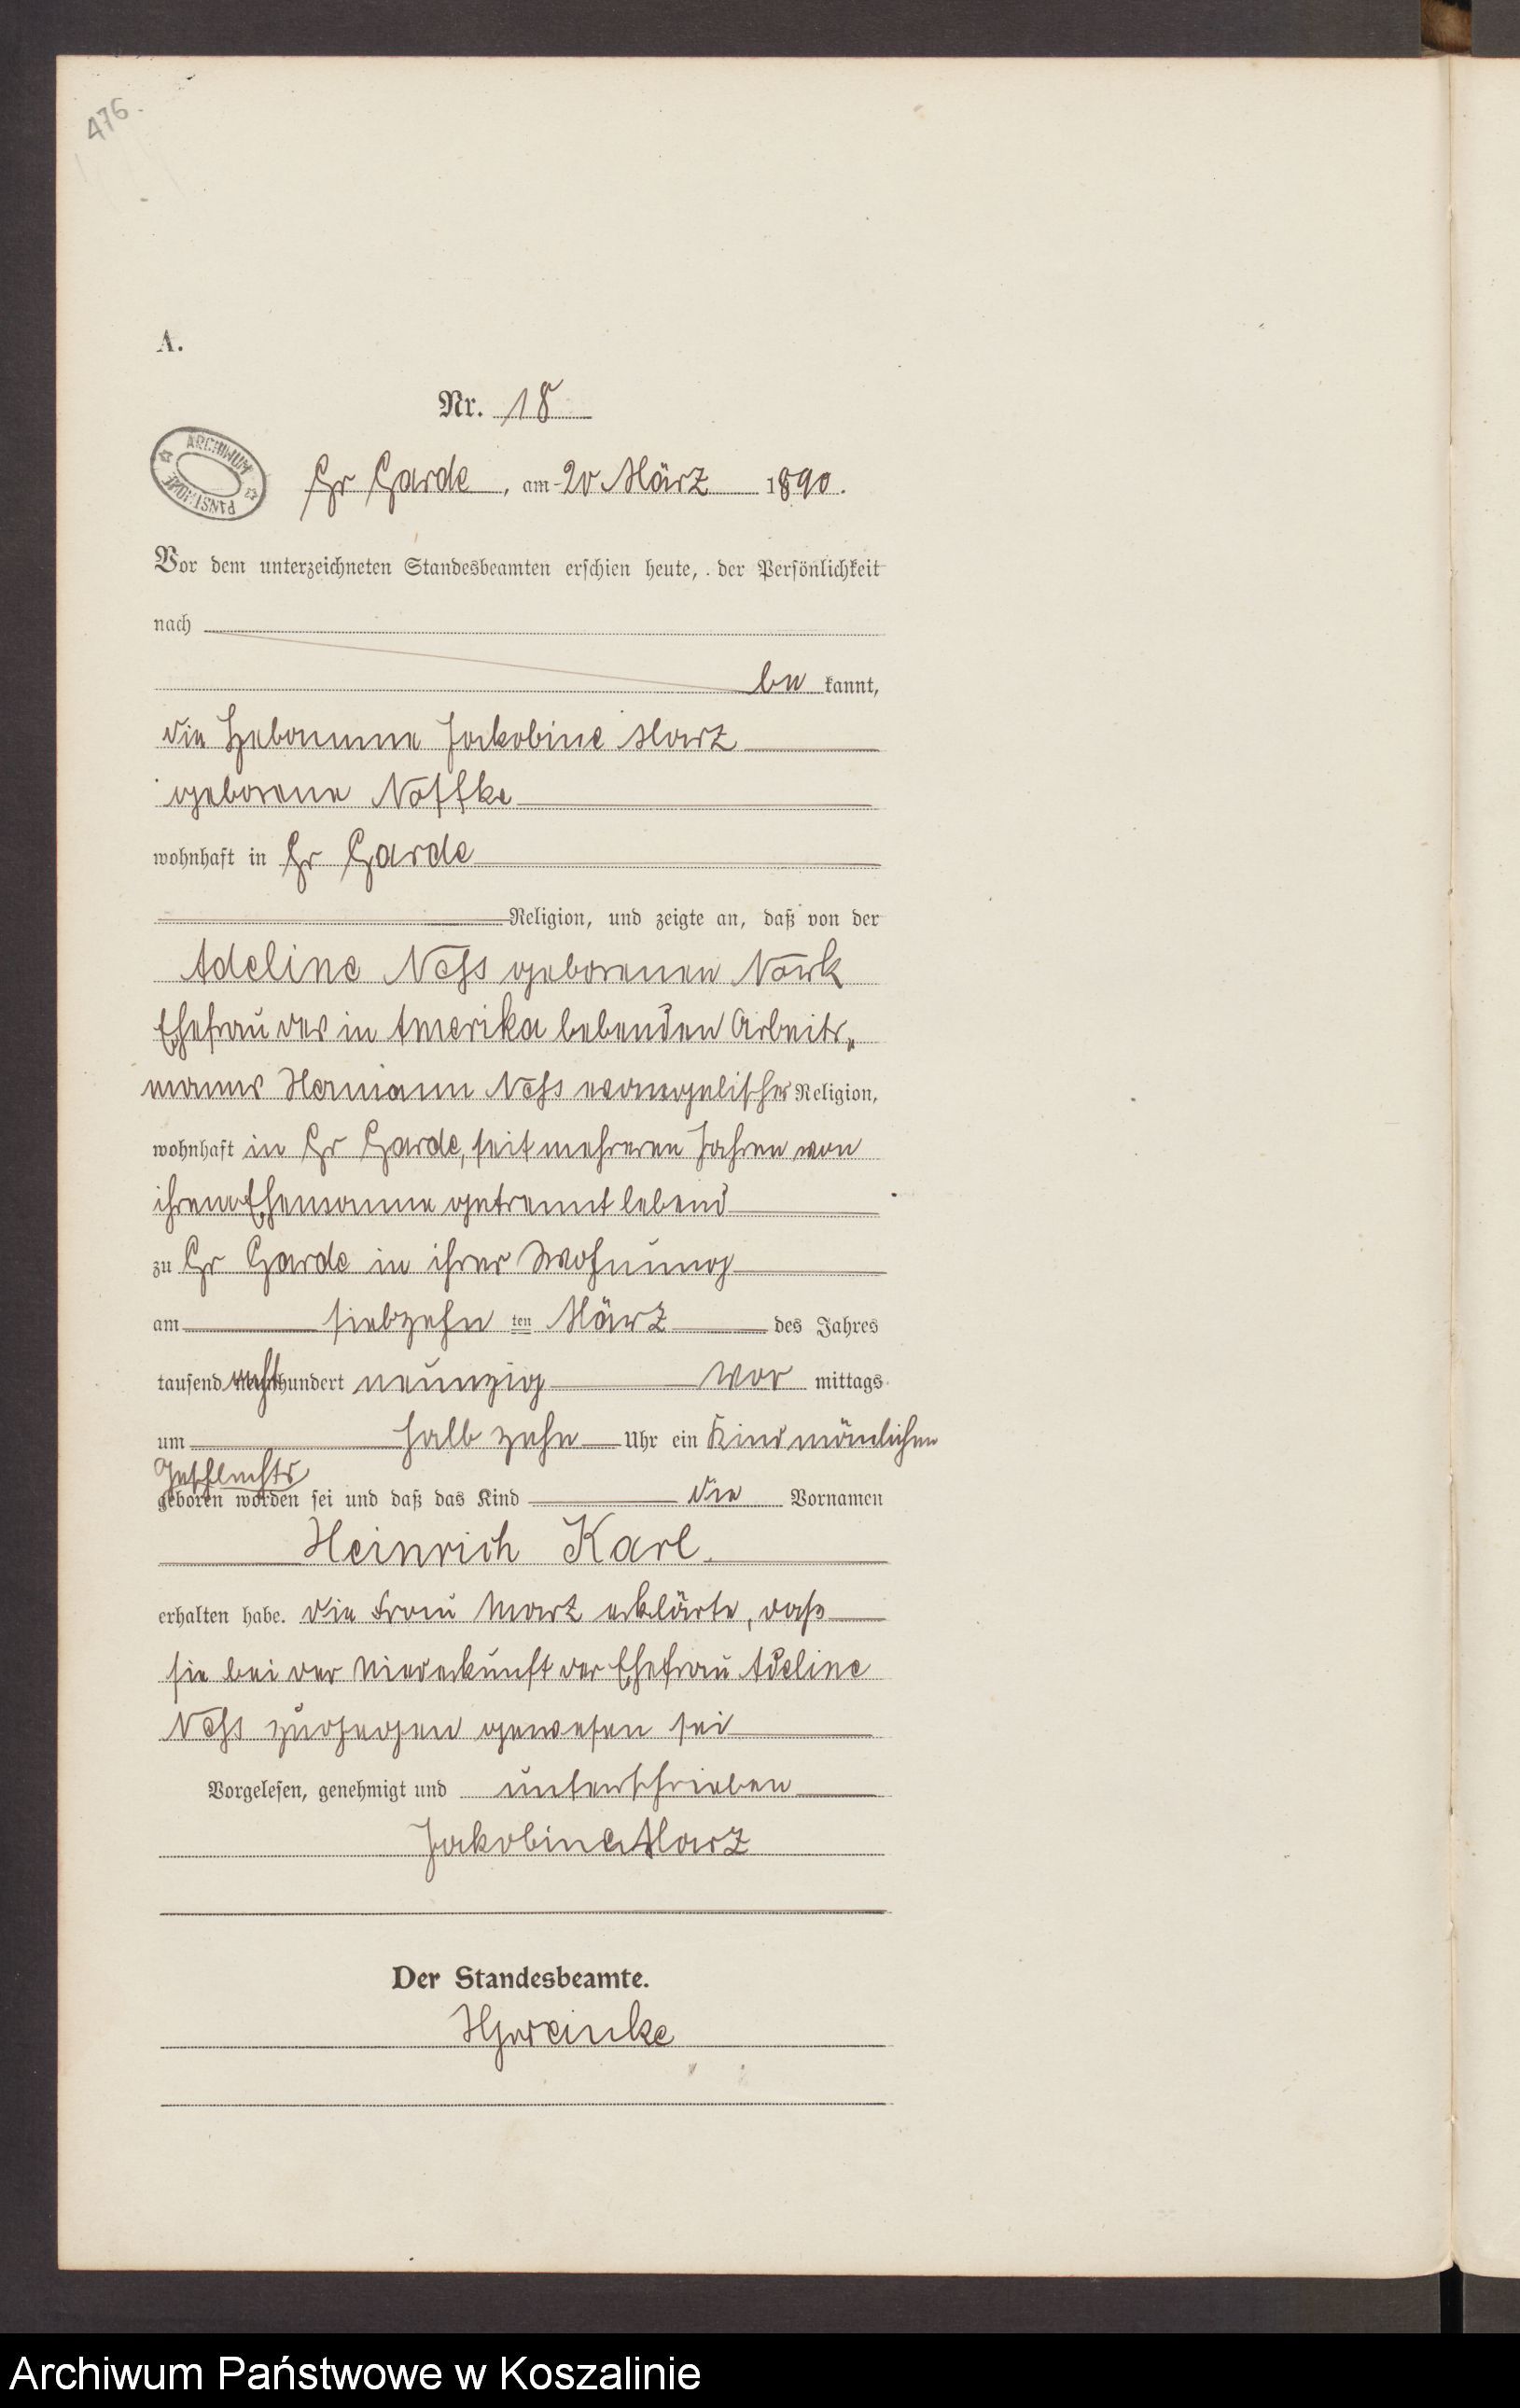 476.
A.
Nr. 18
ARCHIWUM PAŃSTWOWE
Gr Garde, am 20 März 1890.
Vor dem unterzeichneten Standesbeamten erschien heute, der Persönlichkeit
nach
be kannt,
die Hebamme Jakobine Marz
geborene Noffke
wohnhaft in Gr Garde
Religion, und zeigte an, daß von der
Adeline Noss geborenen
Ehefrau des in Amerika lebenden Arbeits„
manns Hermann Noss evangelischer Religion,
wohnhaft in Gr Garde, seit mehreren Jahren von
ihrem Ehemanne getrennt lebend
zu Gr Garde in ihrer Wohnung
am siebzehn ten März des Jahres
tausend acht hundert neunzig Vor mittags
um halb zehn Uhr ein Kind mänlichen
Geschlechts
geboren worden sei und daß das Kind die Vornamen
Heinrich Karl.
erhalten habe. Die Frau Marz erklärte, daß
sie bei der Niederkunft der Ehefrau Adeline
Noss zugegen gewesen sei
Vorgelesen, genehmigt und unterschrieben
Jakobine Marz
Der Standesbeamte.
Archiwum Państwowe w Koszalinie